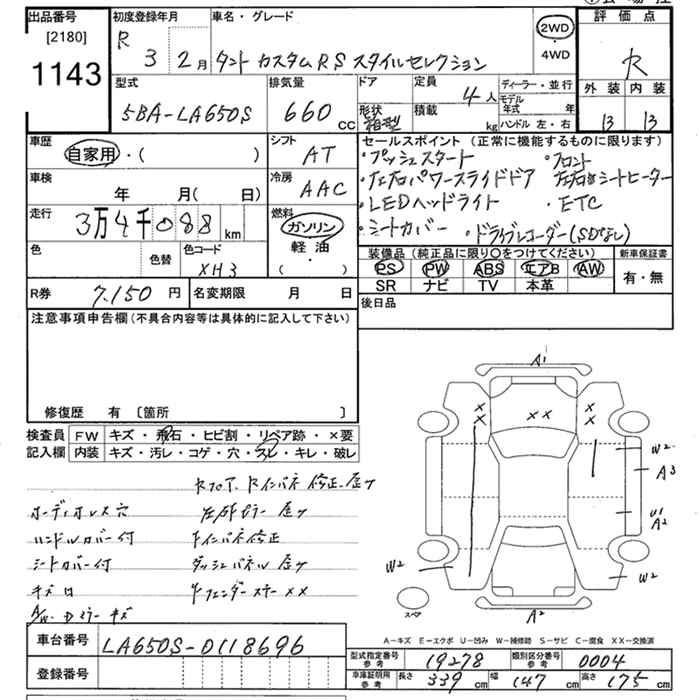 出品番号
[2180]
1143
初度登録年月
R 3 2月
車名・グレード
タント カスタムRS スタイルセレクション
2WD
・
4WD
評価点
R
外装 内装
B B
型式
5BA-LA650S
排気量
660 CC
ドア
形状
箱型
定員
4人
積載
kg
ディーラー・並行
モデル年式 年
ハンドル 左・右
車歴
自家用・( )
シフト
AT
車検
年 月( 日)
冷房
AAC
走行
3万4千088 km
燃料
ガソリン
軽油
( )
色
色替
色コード
XH3
R券 7,150 円
名変期限 月 日
セールスポイント (正常に機能するものに限ります)
・プッシュスタート ・フロント
・左右パワースライドドア 左右シートヒーター
・LEDヘッドライト ・ETC
・シートカバー ・ドライブレコーダー(SDなし)
装備品 (純正品に限り〇をつけてください)
新車保証書
PS PW ABS エアB AW
SR ナビ TV 本革
有・無
後日品
注意事項申告欄 (不具合内容等は具体的に記入して下さい)
修復歴 有 〔箇所 〕
検査員
記入欄
FW キズ・飛石・ヒビ割・リペア跡・×要
内装 キズ・汚レ・コゲ・穴・スレ・キレ・破レ
Rフロア、Rインパネ修正、曲ケ
オーディオレス穴
ハンドルカバー付
インパネ修正
シートカバー付
ダッシュパネル 曲ケ
キズ
フェンダーステー ××
Dミラー キズ
A1
××
W2
A3
U1
A2
W2
W2
スペア
A2
A-キズ E-エクボ U-凹み W-補修跡 S-サビ C-腐食 XX-交換済
車台番号
LA650S-0118696
登録番号
型式指定番号
参考
19278
類別区分番号
参考
0004
車庫証明用
参考
長さ 339 cm
幅 147 cm
高さ 175 cm